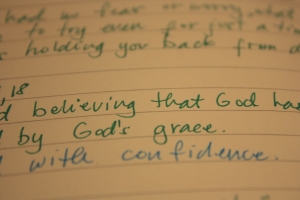 had no fear or worry, what
to try even for just a tim
s holding you back from d
, 18
d believing that God has
by God's grace.
with confidence.